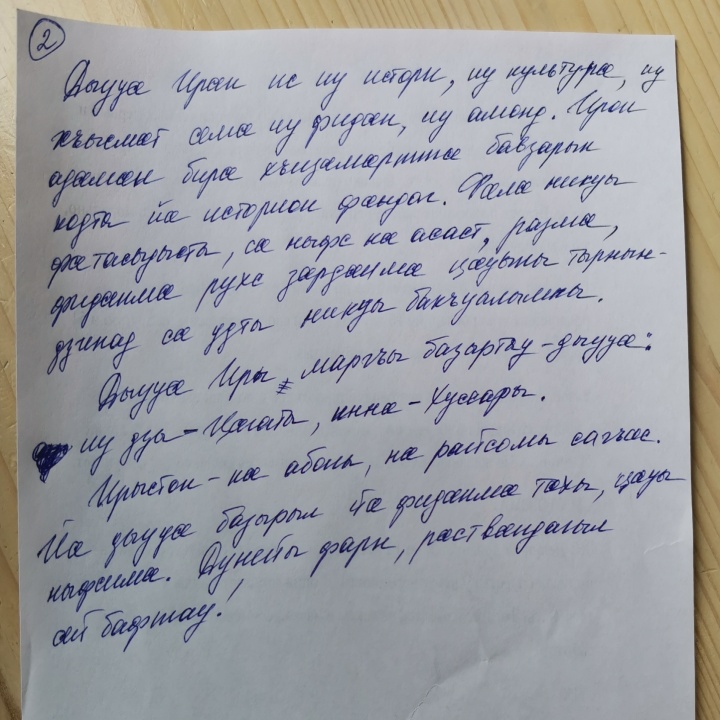 2
Дыууæ Ирæн ис иу истори, иу культурæ, иу
хъысмæт æмæ иу фидæн, иу амонд. Ирон
адæмæн бирæ хъизæмæрттæ бавзарын
кодта йæ историон фæндаг. Фæлæ никуы
фæтасыдысты, сæ ныфс нæ асаст, размæ,
фидæнмæ рухс зæрдæимæ цæуыны тырнын-
дзинад сæ удты никуы бакъуылымпы.
Дыууæ Иры, маргъы базыртау - дыууæ:
иу дзы - Цæгаты, иннæ - Хуссары.
Ирыстон - нæ абоны, нæ райсомы сагъæс.
Йæ дыууæ базырыл та фидæнмæ тæхы, цæуы
ныфсимæ. Дунейы фарн, рæствæндагыл
æй бафтау!